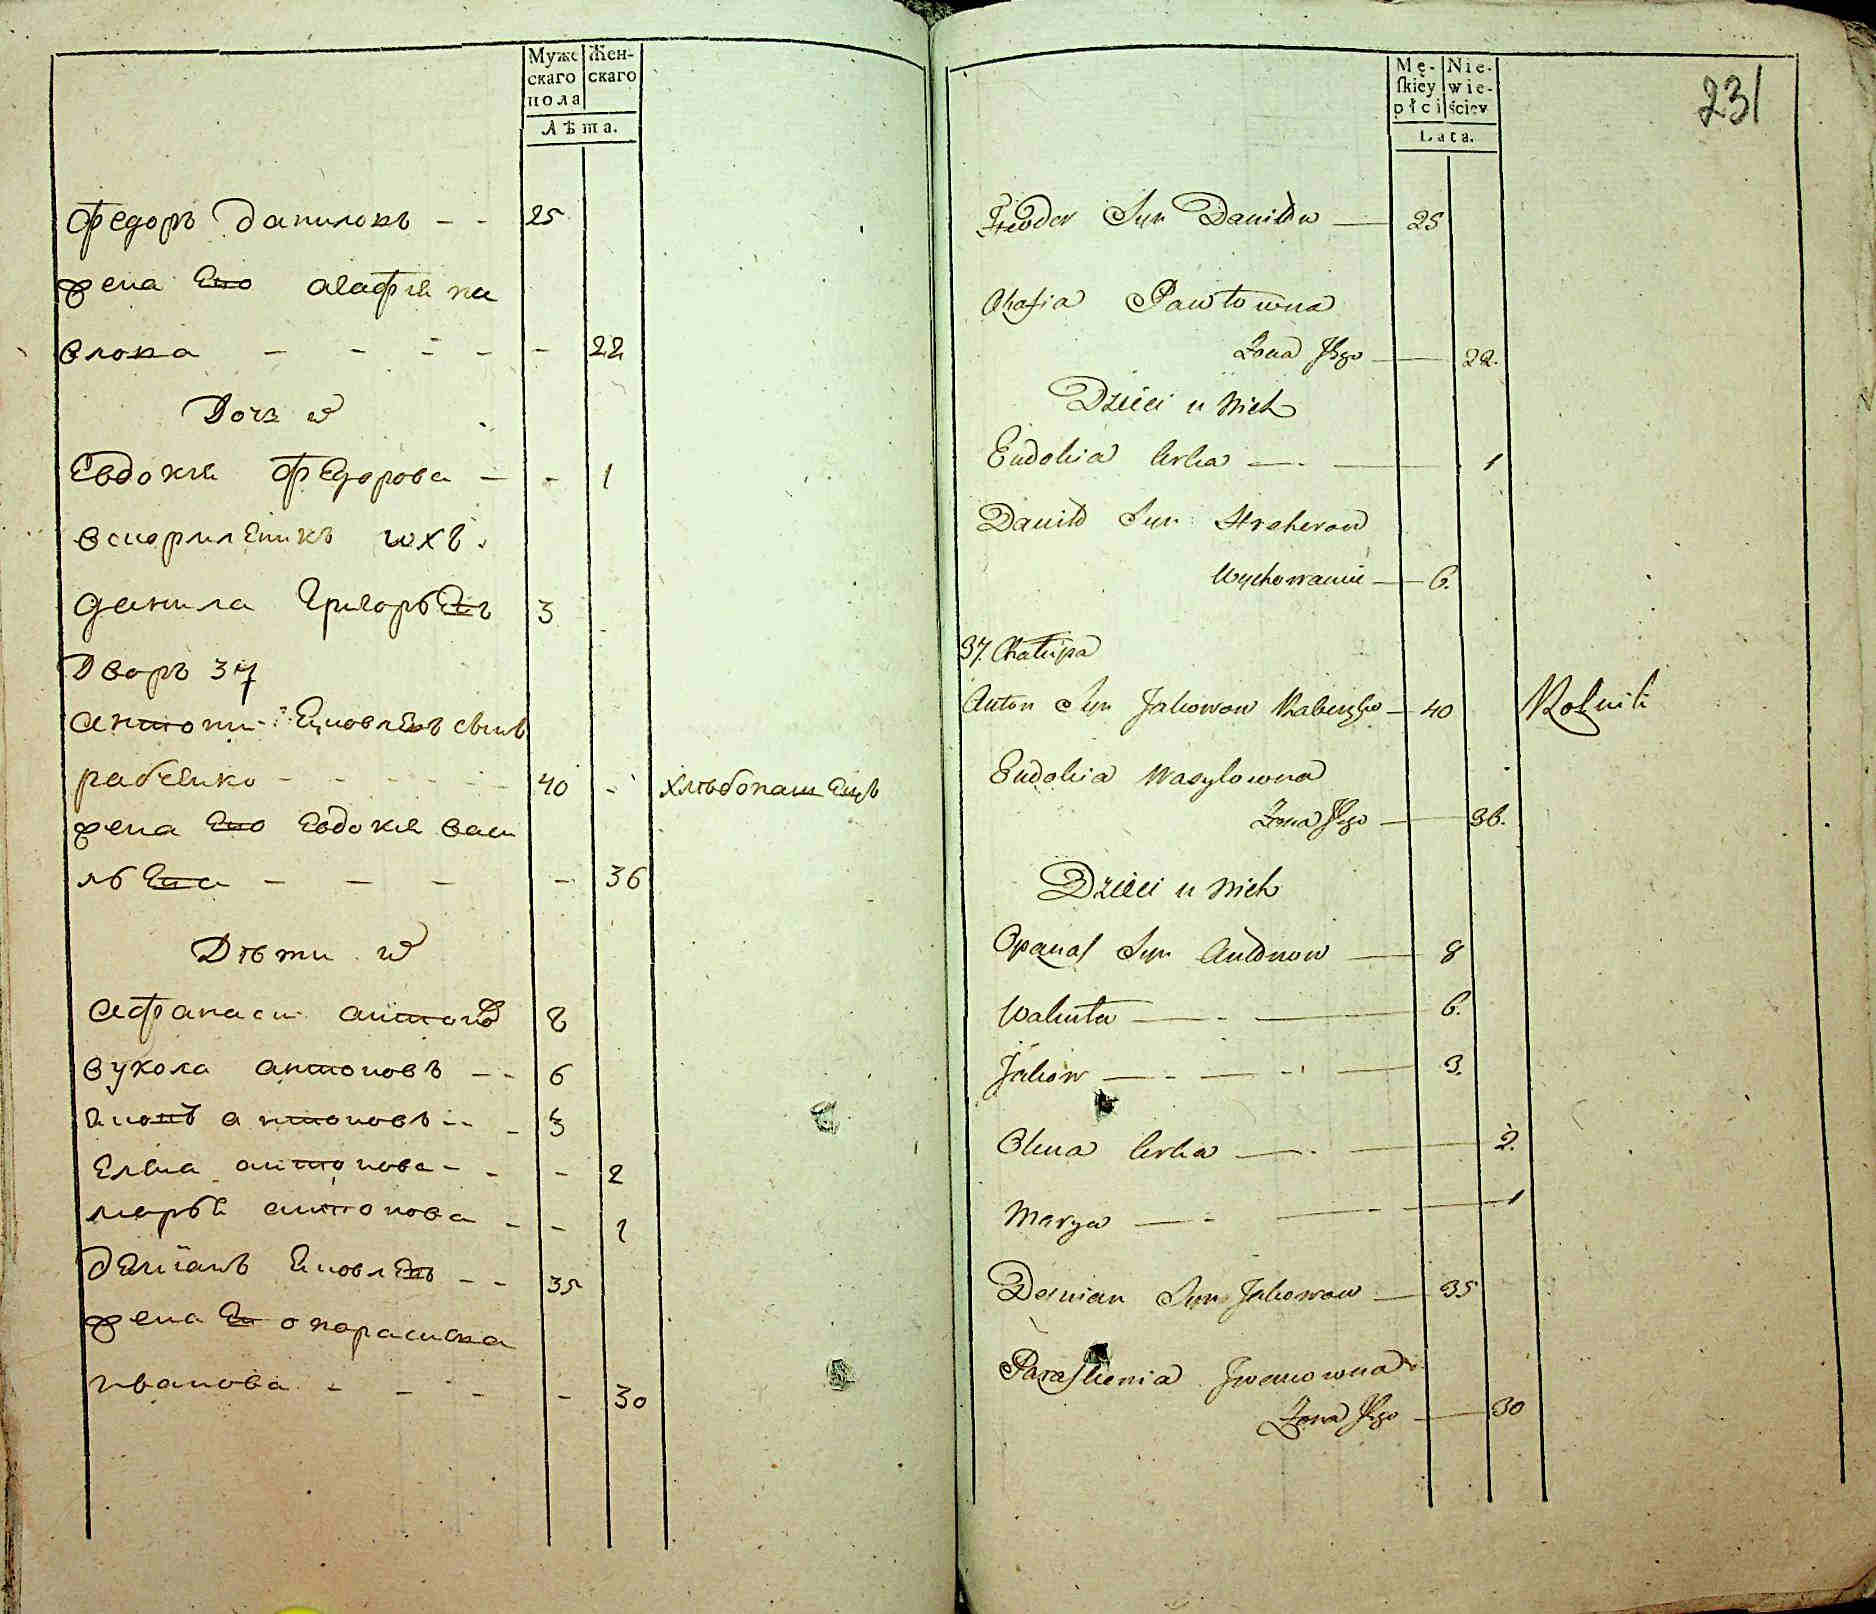 Муже
скаго
пола
Жен-
скаго
Лѣта.
федоръ даниловъ - - 25
жена Его агафия па
влова - - - - - 22
Дочь
Евдокия федорова - - 1
вскормленикъ ихъ.
данила григорьевъ 3
Дворъ 37
антони Яковлевъ сынъ
рабченко - - - 40 - хлѣбопашецъ
жена Его Евдокия васи
льева - - - - 36
Дѣти
афанаси антоновъ 8
вукола антоновъ - - 6
Яковъ антоновъ - - - 3
Елена антонова - - - 2
марья антонова - - 1
демианъ Яковлевъ - - 35
жена Его парасковa
иванова - - - - 30
Mę-
skiey
płci
Nie-
wie-
ściey
Lata.
231
Fieodor Syn Daniłow — 25
Ahafia Pawłowna
Zona Jego — 22.
Dzieci u Nich
Eudokia Corka — 1
Daniło Syn Hreherow
Wychowaniec — 6.
37. Chałupa
Anton Syn Jakowow Rabczenko — 40 Rolnik
Eudokia Wasylowna
Zona Jego — 36.
Dzieci u Nich
Opanas Syn Antonow — 8
6.
Jakow — 3.
Olena Corka — 2.
Marya — 1
Demian Syn Jakowow — 35
Paraskewia Jwanowna
Zona Jego — 30